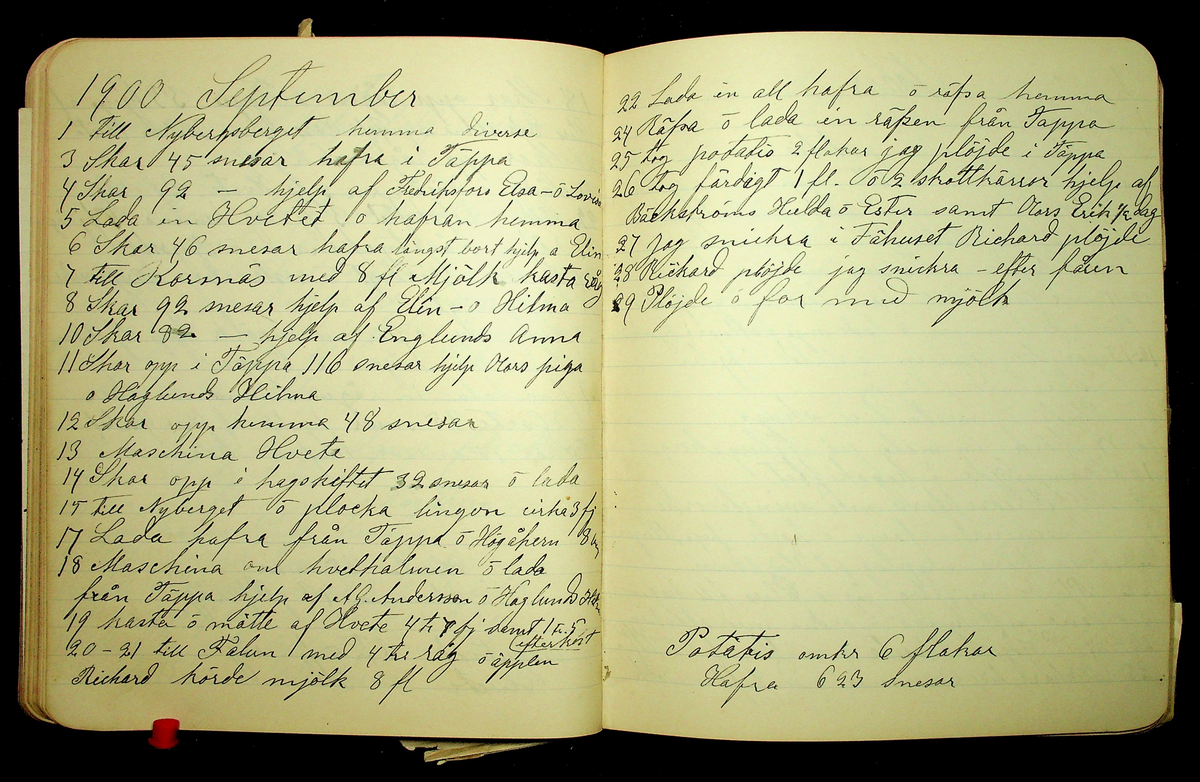 1900 September
1 till Nybergsberget hemma diverse
3 Skar 45 snesar hafra i Täppa
4 Skar 92 — hjelp af Fredriksfors Elsa – ō Lovisa
5 Lada in Hvetet o hafran hemma
6 Skar 46 snesar hafra längst bort hjelp a Elin
7 till Korsnäs med 8 fl Mjölk kasta råg
8 Skar 92 snesar hjelp af Elin – o Hilma
10 Skar 82 — hjelp af Englunds Anna
11 Skar opp i Täppa 116 snesar hjelp Mors piga
o Haglunds Hilma
12 Skar opp hemma 48 snesar
13 Maschina Hvete
14 Skar opp i hagskiftet 32 snesar ō lada
15 till Nyberget ō plocka lingon cirka 3 fj
17 Lada hafra från Täppa ō Högåkern 8
18 Maschina om hvethalmen ō lada
från Täppa hjelp af A.G. Andersson ō Haglunds
19 kasta ō mätte af Hvete 4 tr 7 fj samt 1 tr 5
efterkast
20-21 till Falun med 4 tr råg ō äpplen
Richard körde mjölk 8 fl
22 Lada in all hafra ō räfsa hemma
24 Räfsa ō lada in räfsen från Täppa
25 tog potatis 2 flakar jag plöjde i Täppa
26 tog färdigt 1 fl. ō 2 skottkärror hjelp af
Bäckströms Hulda ō Ester samt Mors Erik 1/2 dag
27 jag snickra i Fähuset Richard plöjde
28 Richard plöjde jag snickra – efter fåren
29 Plöjde ō for med mjölk
Potatis omkr 6 flakar
Hafra 623 snesar